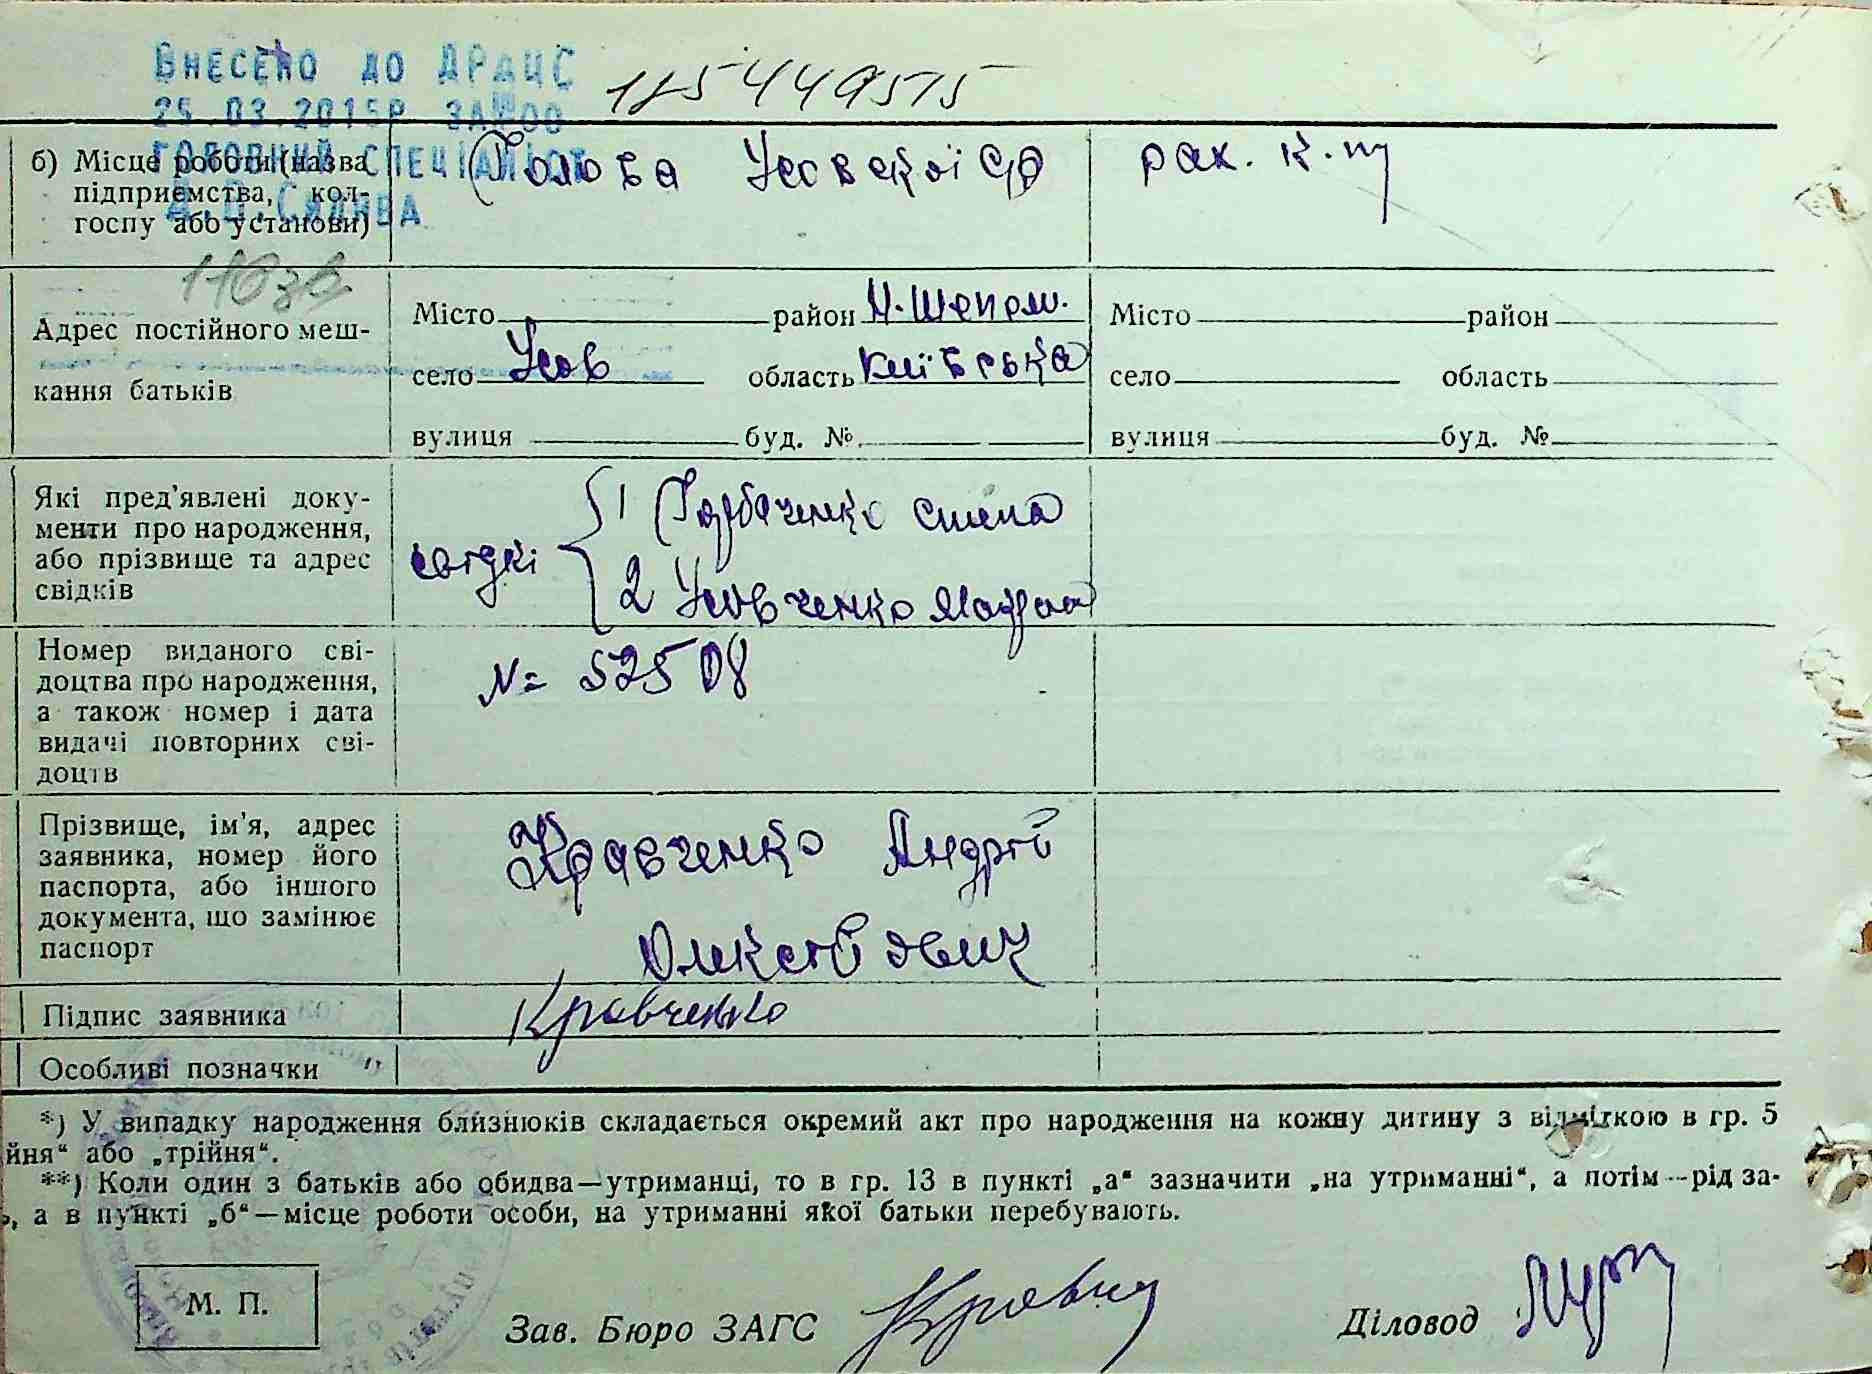 ВНЕСЕНО ДО ДРАЦС
185449515
25.03.2015Р ЗА №00
ГОЛОВНИЙ СПЕЦІАЛІСТ
б) Місце роботи (назва підприємства, кол-
госпу або установи)
Голова Усовскої С/Р
рак. к.п
Адрес постійного меш-
кання батьків
Місто район Н.Шепелm.
село Усов область Київська
вулиця буд. №
Місто район
село область
вулиця буд. №
Які пред'явлені доку-
менти про народження,
або прізвище та адрес
свідків
свідкі
1 Горбаченко
2 Усовченко
Номер виданого сві-
доцтва про народження,
а також номер і дата
видачі повторних сві-
доцтв
N= 52508
Прізвище, ім'я, адрес
заявника, номер його
паспорта, або іншого
документа, що замінює
паспорт
Кравченко Андрій
Олексійович
Підпис заявника
Кравченко
Особливі позначки
*) У випадку народження близнюків складається окремий акт про народження на кожну дитину з відміткою в гр. 5
йня“ або „трійня“.
**) Коли один з батьків або обидва—утриманці, то в гр. 13 в пункті „а“ зазначити „на утриманні“, а потім—рід за-
ь, а в пункті „б“—місце роботи особи, на утриманні якої батьки перебувають.
М. П.
Зав. Бюро ЗАГС
Діловод